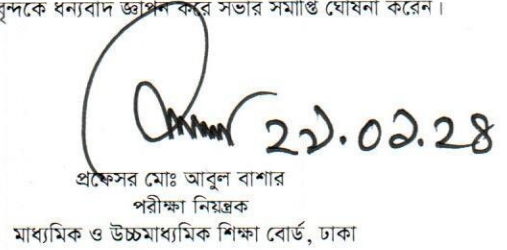 বৃন্দকে ধন্যবাদ জ্ঞাপন করে সভার সমাপ্তি ঘোষনা করেন।
প্রফেসর মোঃ আবুল বাশার
পরীক্ষা নিয়ন্ত্রক
মাধ্যমিক ও উচ্চমাধ্যমিক শিক্ষা বোর্ড, ঢাকা